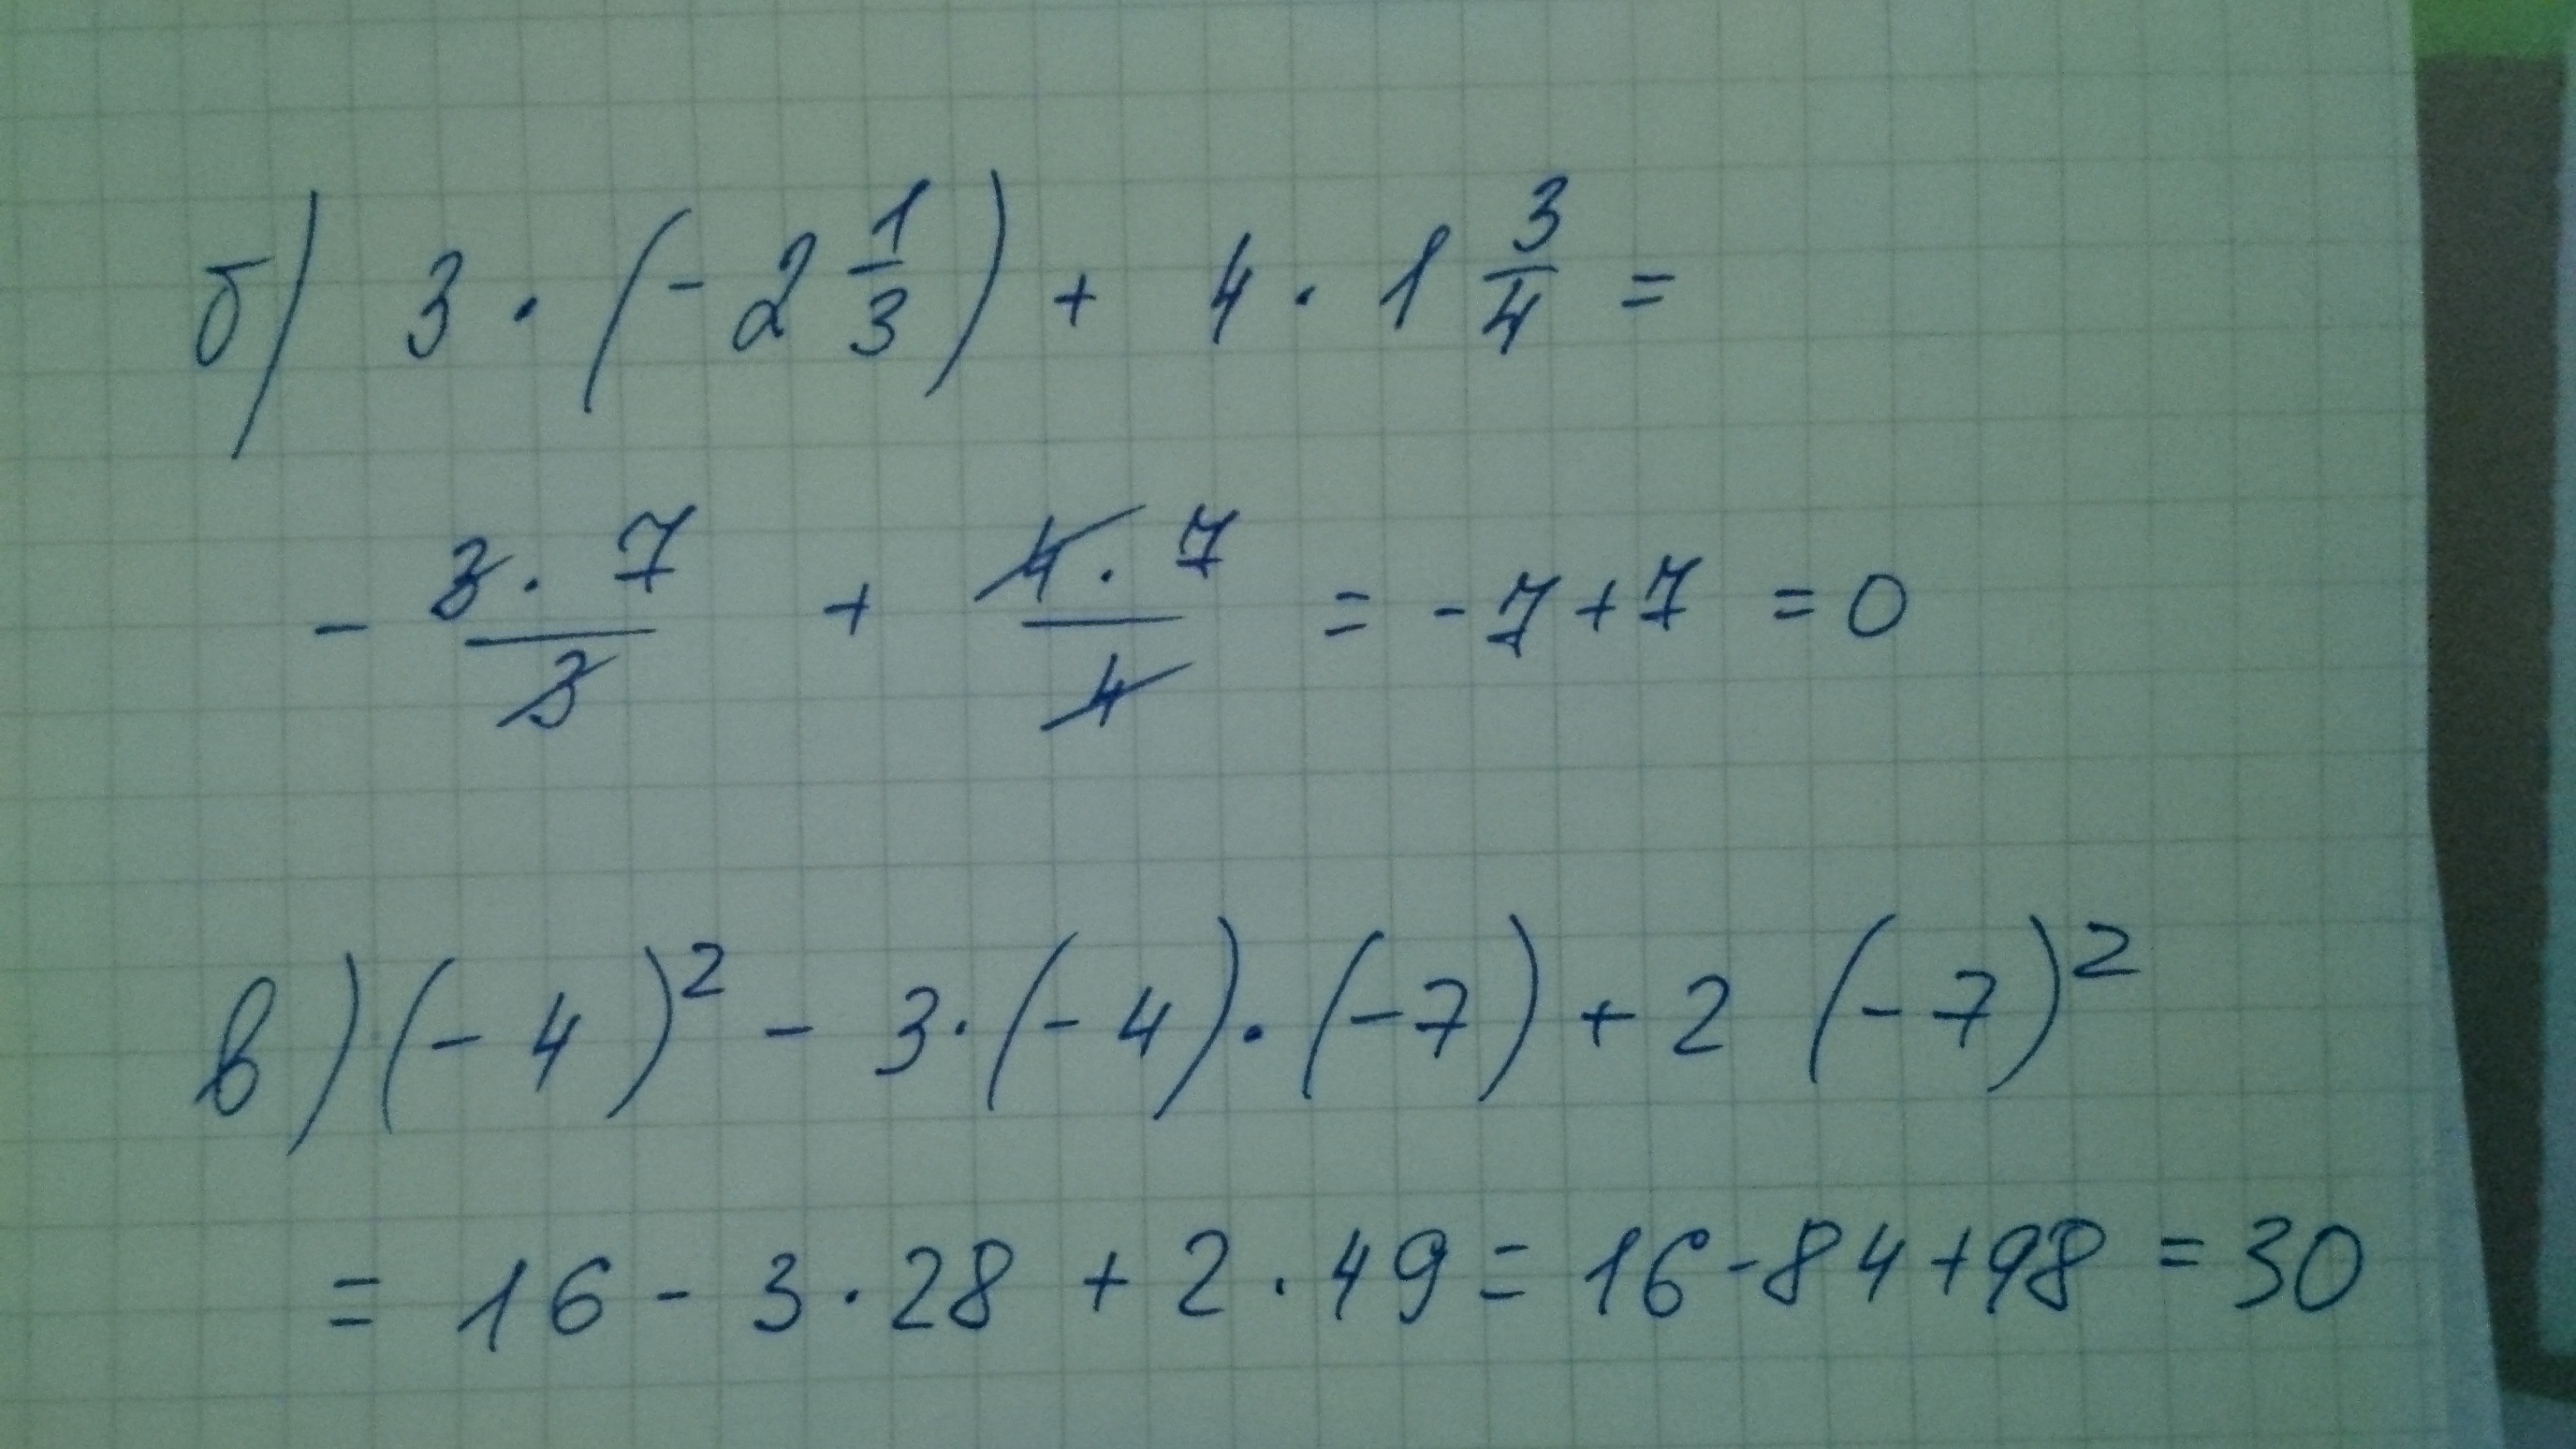 б) 3 · (-2 1/3) + 4 · 1 3/4 =
- 3 · 7/3 + 4 · 7/4 = -7+7 = 0
в) (-4)² - 3·(-4)·(-7) + 2 (-7)²
= 16 - 3 · 28 + 2 · 49 = 16-84+98 = 30